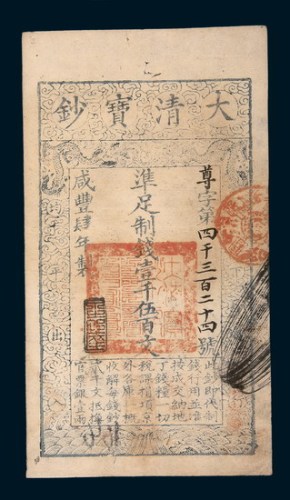 大清寶鈔
尊字第四千三百二十四號
準足制錢壹千伍百文
咸豐肆年製
均平出入
此鈔即代制
錢行用並准
按成交納地
丁錢糧一切
稅課捐項京
外各庫一概
收解每錢鈔
貳千文抵換
官票銀壹兩